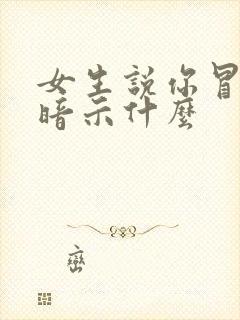 女生說你冒
暗示什麼
巒